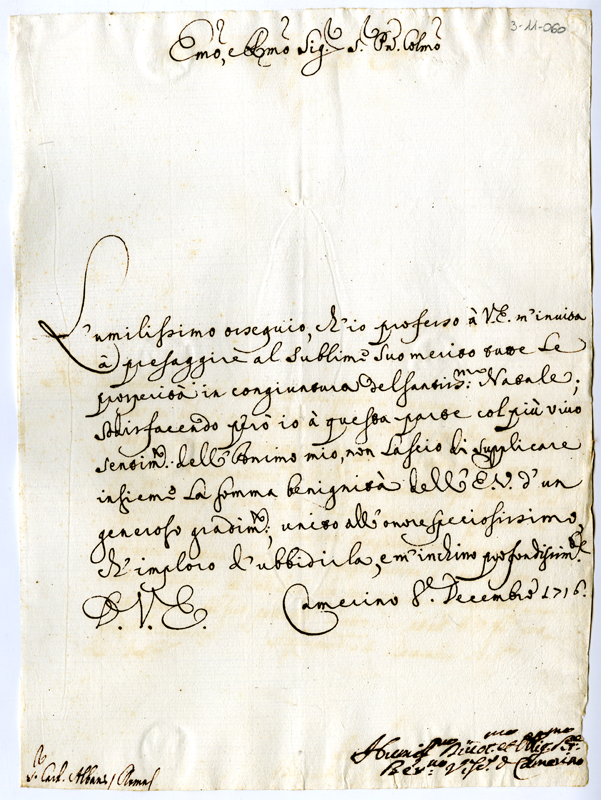 3-11-060
Emo, e Rmo Sig.r S.r Pn. Colmo
L'umilissimo ossequio, ch'io professo à V.E. m'invita
à presaggire al sublime suo merito tutte le
prosperità in congiuntura del santiss.mo Natale;
sodisfacendo però io à questa parte col più vivo
sentim.to dell'Animo mio, non lascio di supplicare
insieme la somma benignità dell'E.V. d'un
generoso gradim.to, unito all'onore speciosissimo,
ch'imploro d'ubbidirla, e m'inchino profondissim.te
D. V. E. Camerino 8 Decembre 1716.
S.r Card. Albani / Roma